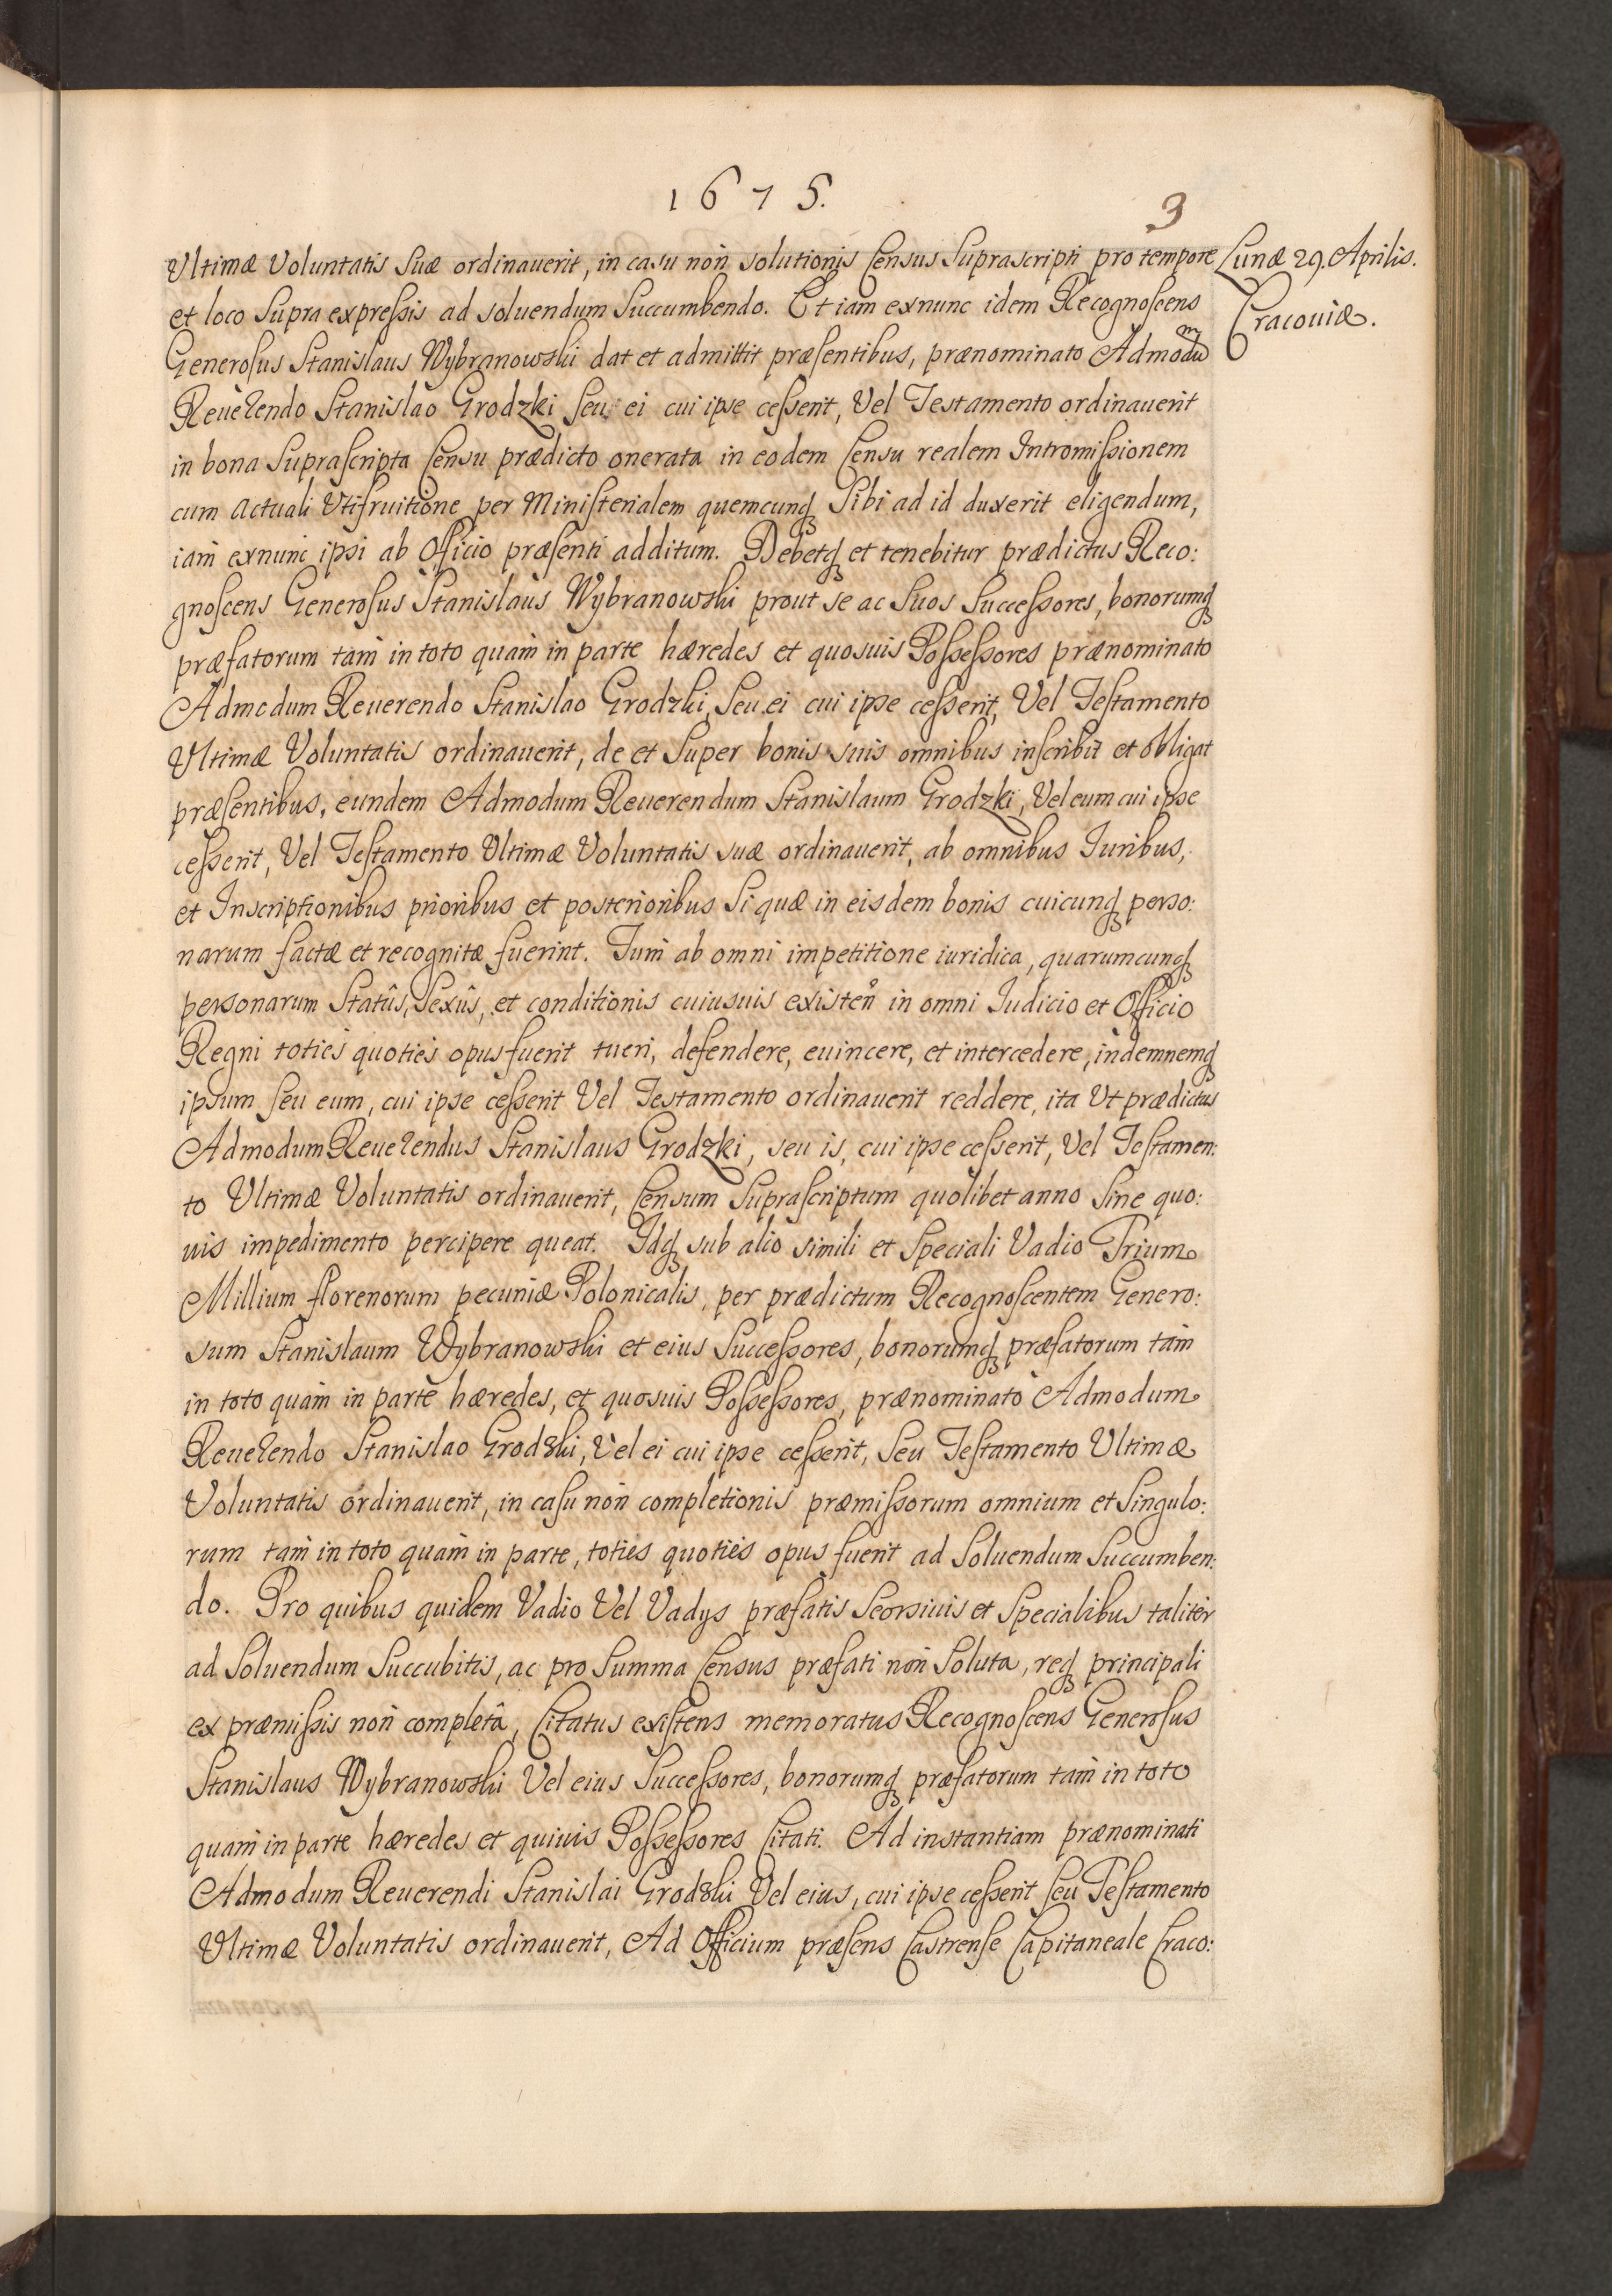 1675.
3
Lunæ 29. Aprilis.
Cracouiæ.
Ultimæ Voluntatis Suæ ordinauerit, in casu non solutionis Census Suprascripti pro tempore
et loco Supra expressis ad soluendum Succumbendo. Et iam exnunc idem Recognoscens
Generosus Stanislaus Wybranowski dat et admittit præsentibus, prænominato Admodum
Reuerendo Stanislao Grodzki seu ei cui ipse cesserit, Vel Testamento ordinauerit
in bona Suprascripta Censu prædicto onerata in eodem Censu realem Intromissionem
cum actuali Utifruitione per Ministerialem quemcunq Sibi ad id duxerit eligendum,
iam exnunc ipsi ab Officio præsenti additum. Debetq et tenebitur prædictus Reco:
gnoscens Generosus Stanislaus Wybranowski prout se ac Suos Successores, bonorumq
præfatorum tam in toto quam in parte hæredes et quosuis Possessores prænominato
Admodum Reuerendo Stanislao Grodzki, Seu ei cui ipse cesserit, Vel Testamento
Ultimæ Voluntatis ordinauerit, de et Super bonis suis omnibus inscribit et obligat
præsentibus, eundem Admodum Reuerendum Stanislaum Grodzki, Vel eum cui ipse
cesserit, Vel Testamento Ultimæ Voluntatis suæ ordinauerit, ab omnibus Iuribus,
et Inscriptionibus prioribus et posterioribus Si quæ in eisdem bonis cuicunq perso:
narum factæ et recognitæ fuerint. Tum ab omni impetitione iuridica, quarumcunq
personarum Statûs, Sexûs, et conditionis cuiusuis existen in omni Iudicio et Officio
Regni toties quoties opus fuerit tueri, defendere, euincere, et intercedere, indemnemq
ipsum seu eum, cui ipse cesserit Vel Testamento ordinauerit reddere, ita Ut prædictus
Admodum Reuerendus Stanislaus Grodzki, seu is, cui ipse cesserit, Vel Testamen:
to Ultimæ Voluntatis ordinauerit, Censum Suprascriptum quolibet anno Sine quo:
uis impedimento percipere queat. Idq sub alio simili et Speciali Vadio Trium
Millium florenorum pecuniæ Polonicalis, per prædictum Recognoscentem Genero:
sum Stanislaum Wybranowski et eius Successores, bonorumq præfatorum tam
in toto quam in parte hæredes, et quosuis Possessores, prænominato Admodum
Reuerendo Stanislao Grodzki, Vel ei cui ipse cesserit, Seu Testamento Ultimæ
Voluntatis ordinauerit, in casu non completionis præmissorum omnium et Singulo:
rum tam in toto quam in parte, toties quoties opus fuerit ad Soluendum Succumben:
do. Pro quibus quidem Vadio Vel Vadys præfatis Seorsiuis et Specialibus taliter
ad Soluendum Succubitis, ac pro Summa Census præfati non Soluta, req principali
ex præmissis non completâ, Citatus existens memoratus Recognoscens Generosus
Stanislaus Wybranowski Vel eius Successores, bonorumq præfatorum tam in toto
quam in parte hæredes et quiuis Possessores Citati. Ad instantiam prænominati
Admodum Reuerendi Stanislai Grodzki Vel eius, cui ipse cesserit seu Testamento
Ultimæ Voluntatis ordinauerit, Ad Officium præsens Castrense Capitaneale Craco: